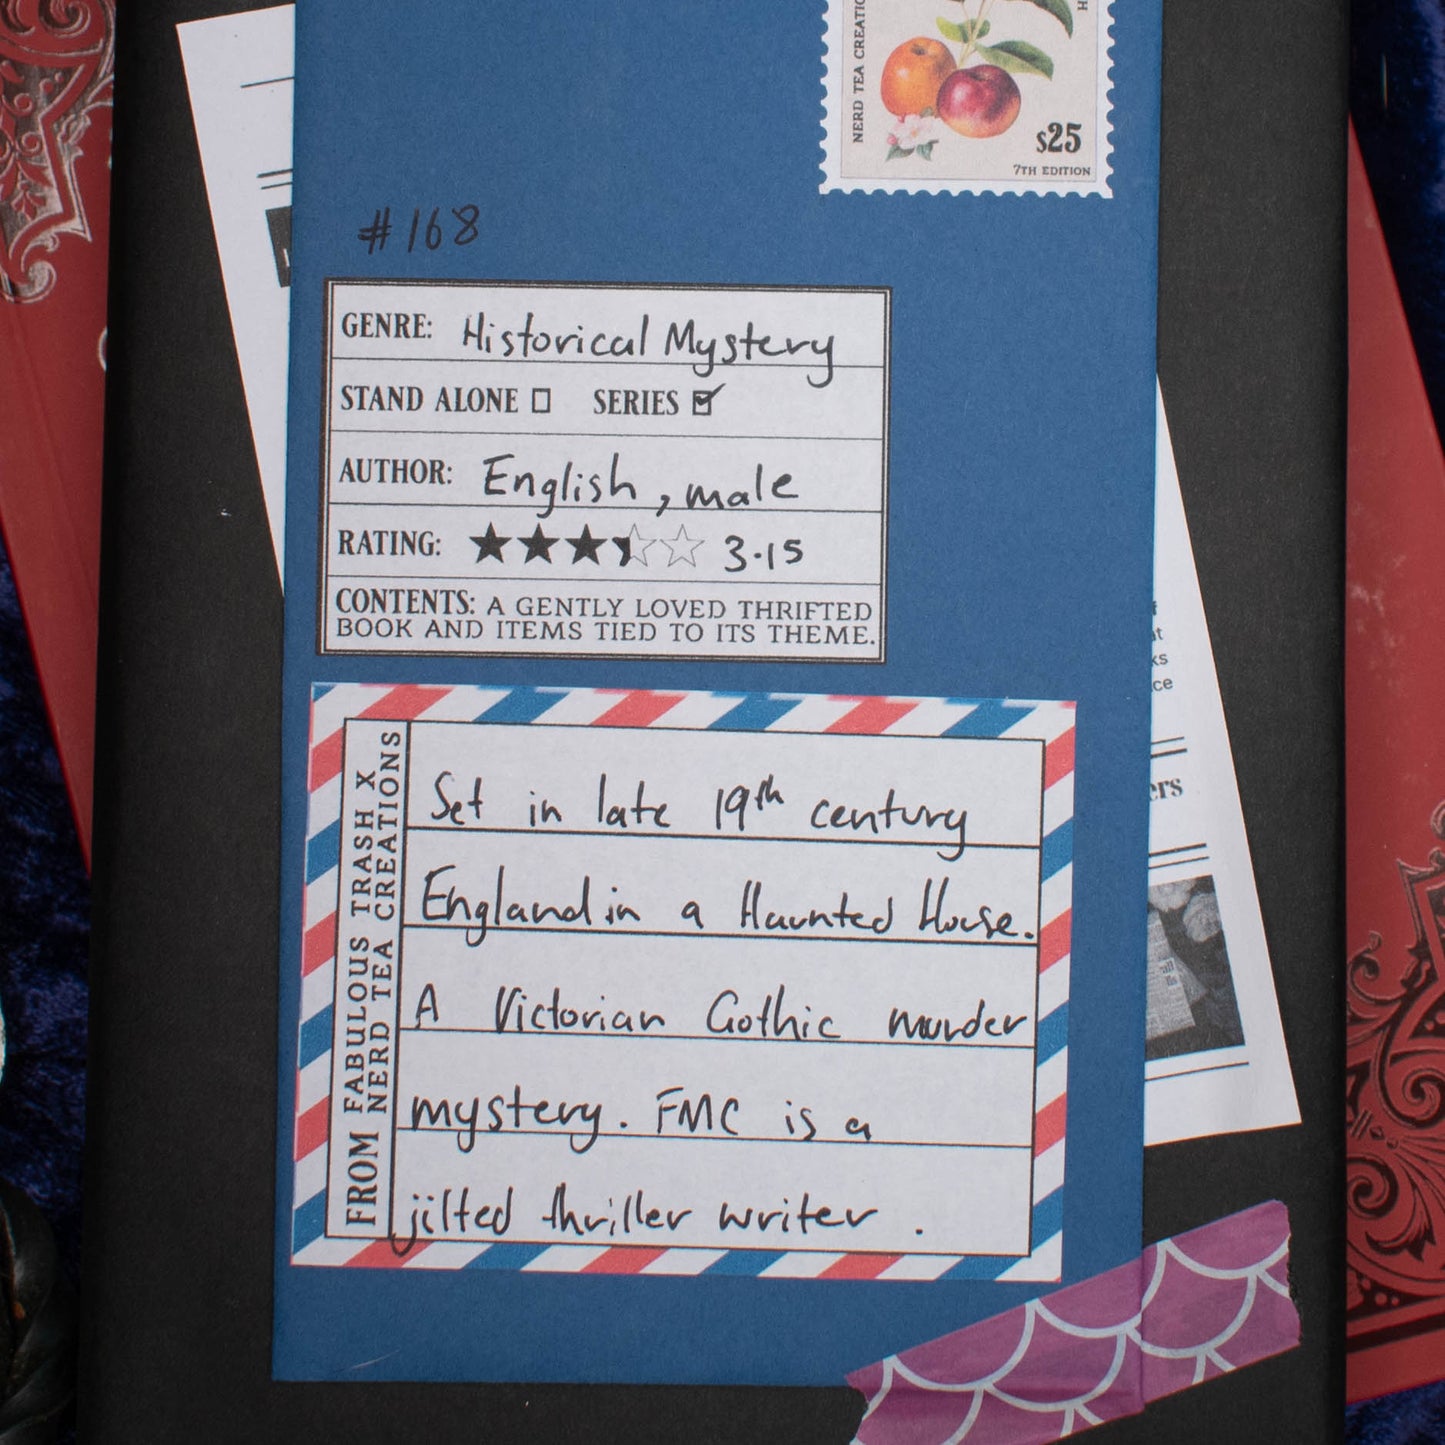 NERD TEA CREATIO
$25
7TH EDITION
#168
GENRE: Historical Mystery
STAND ALONE SERIES
AUTHOR: English, male
RATING: 3.15
CONTENTS: A GENTLY LOVED THRIFTED
BOOK AND ITEMS TIED TO ITS THEME.
FROM FABULOUS TRASH X
NERD TEA CREATIONS
Set in late 19th century
England in a Haunted House.
A Victorian Gothic murder
mystery. FMC is a
jilted thriller writer.